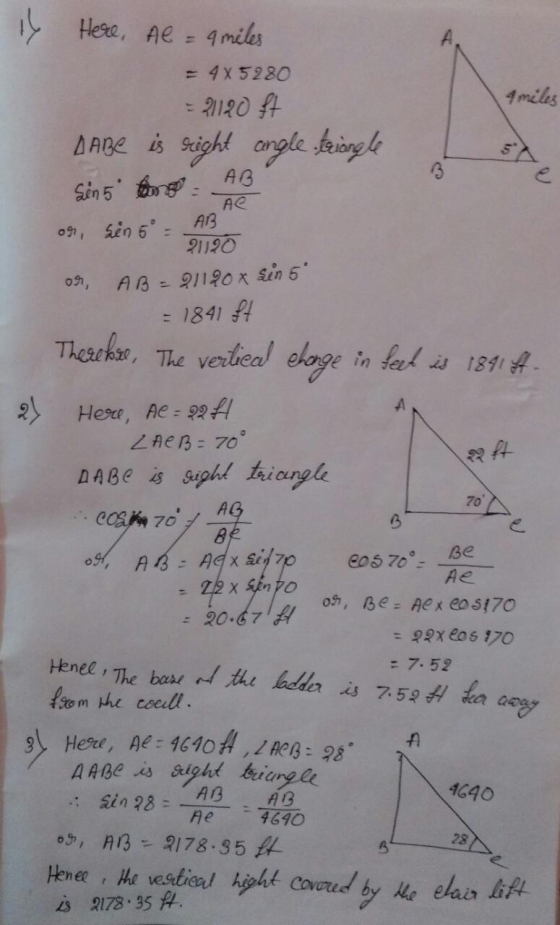 1) Here, AC = 4 miles
= 4 × 5280
= 21120 ft
A
4 miles
5°
B
C
ΔABC is right angle triangle
Sin 5° = AB/AC
or, Sin 5° = AB/21120
or, AB = 21120 × Sin 5°
= 1841 ft
Therefore, The vertical change in feet is 1841 ft.
2) Here, AC = 22 ft
∠ACB = 70°
ΔABC is right triangle
A
22 ft
70°
B
C
∴ cos 70° = AB/BC
or, AB = AC × sin 70
= 22 × sin 70
= 20.67 ft
cos 70° = BC/AC
or, BC = AC × cos 70
= 22 × cos 70
= 7.52
Hence, The base of the ladder is 7.52 ft far away
from the wall.
3) Here, AC = 4640 ft, ∠ACB = 28°
ΔABC is right triangle
∴ Sin 28 = AB/AC = AB/4640
or, AB = 2178.35 ft
A
4640
28
B
C
Hence, the vertical hight covered by the chair lift
is 2178.35 ft.